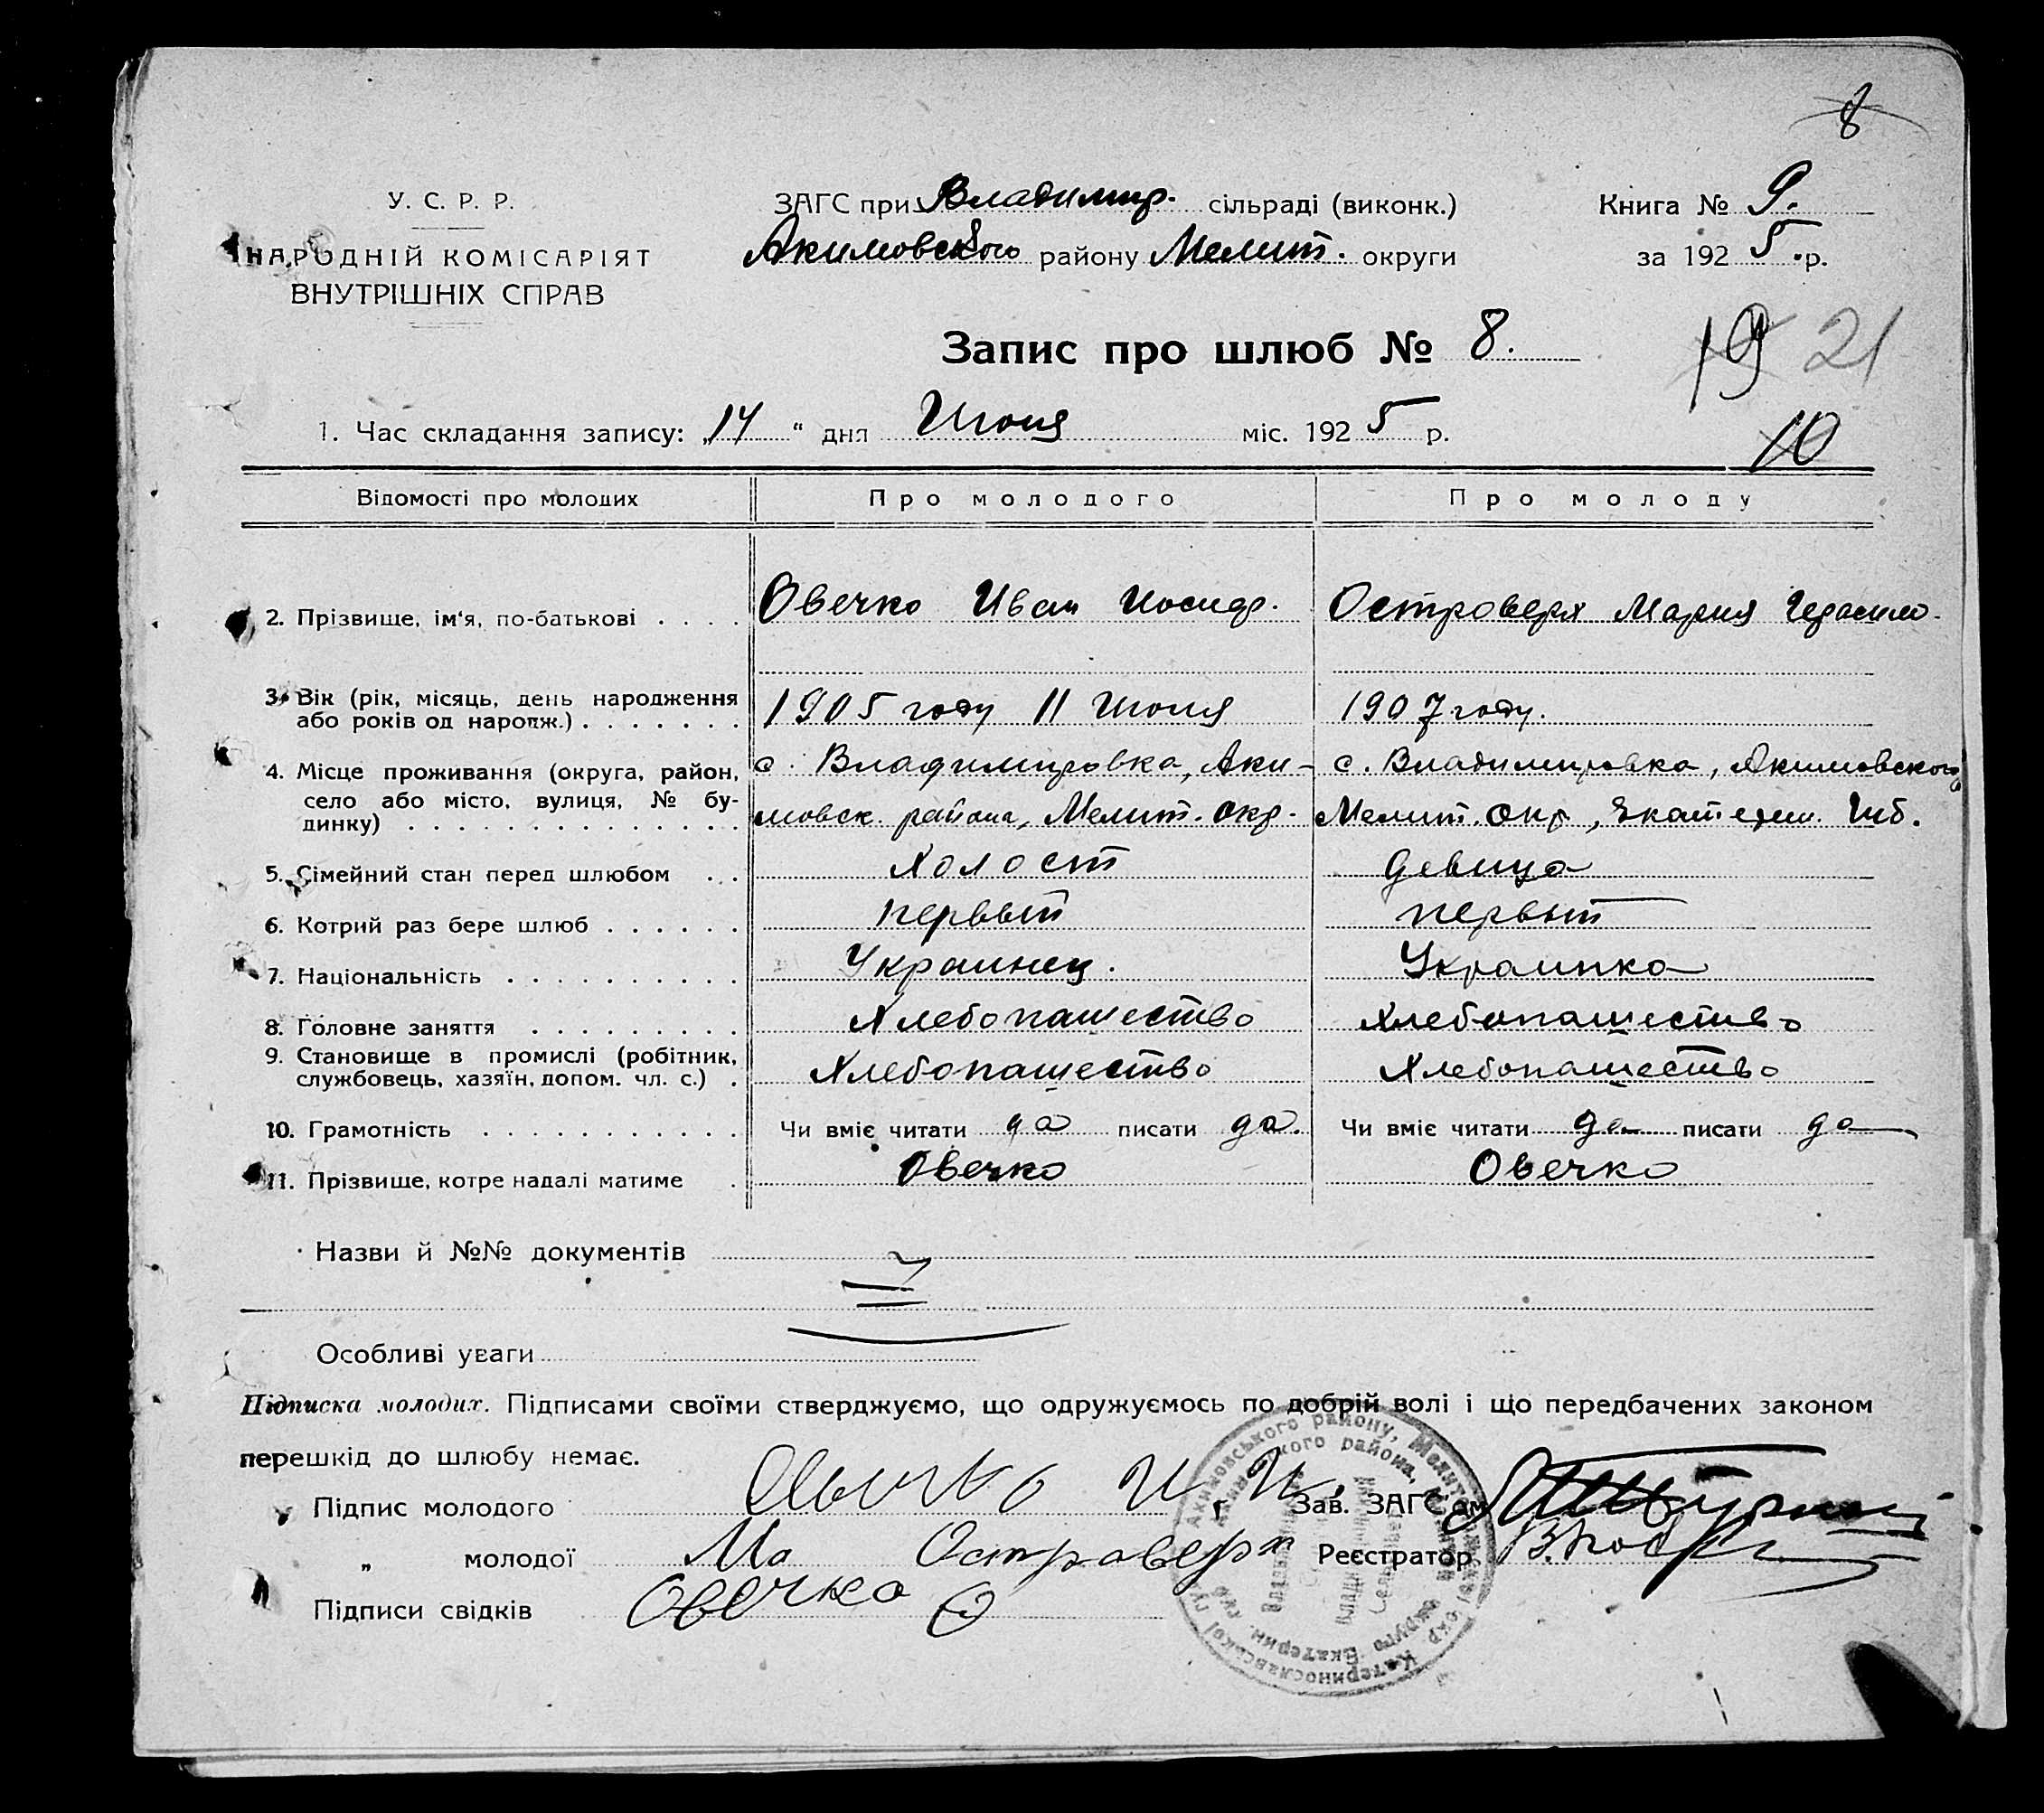 8
У. С. Р. Р.
НАРОДНІЙ КОМІСАРІЯТ
ВНУТРІШНІХ СПРАВ
ЗАГС при Владимир. сільраді (виконк.)
Акимовского району Мелит. округи
Книга № 9.
за 1925 р.
Запис про шлюб № 8.
19 21
1. Час складання запису: „14“ дня Июня міс. 1925 р.
10
Відомості про молодих Про молодого Про молоду
2. Прізвище, ім'я, по-батькові . . . . Овечко Иван Иосиф. Островерх Мария Герасимо.
3. Вік (рік, місяць, день народження
або років од народж.) . . . . . . . 1905 году 11 Июня 1907 году.
4. Місце проживання (округа, район, с. Владимировка, Аки- с. Владимировка, Акимовского
село або місто, вулиця, № бу-
динку) . . . . . . . . . . . . . . мовск. района, Мелит. окр. Мелит. Окр, Екатерин. Губ.
5. Сімейний стан перед шлюбом . . . Холост девица
6. Котрий раз бере шлюб . . . . . . первый первый
7. Національність . . . . . . . . . . Украинец. Украинка
8. Головне заняття . . . . . . . . . Хлебопашество Хлебопашество
9. Становище в промислі (робітник,
службовець, хазяїн, допом. чл. с.) . Хлебопашество Хлебопашество
10. Грамотність . . . . . . . . . . . Чи вміє читати да писати да. Чи вміє читати да писати да
11. Прізвище, котре надалі матиме . Овечко Овечко
Назви й №№ документів
Особливі уваги
Підписка молодих. Підписами своїми стверджуємо, що одружуємось по добрій волі і що передбачених законом
перешкід до шлюбу немає.
Підпис молодого Овечко И И. Зав. ЗАГС'ом
„ молодої Ма Островерх Реєстратор
Підписи свідків Овечко
Акимовського району, Мелитопільської окр. Катеринославської губ.
района, Екатерин. губ.